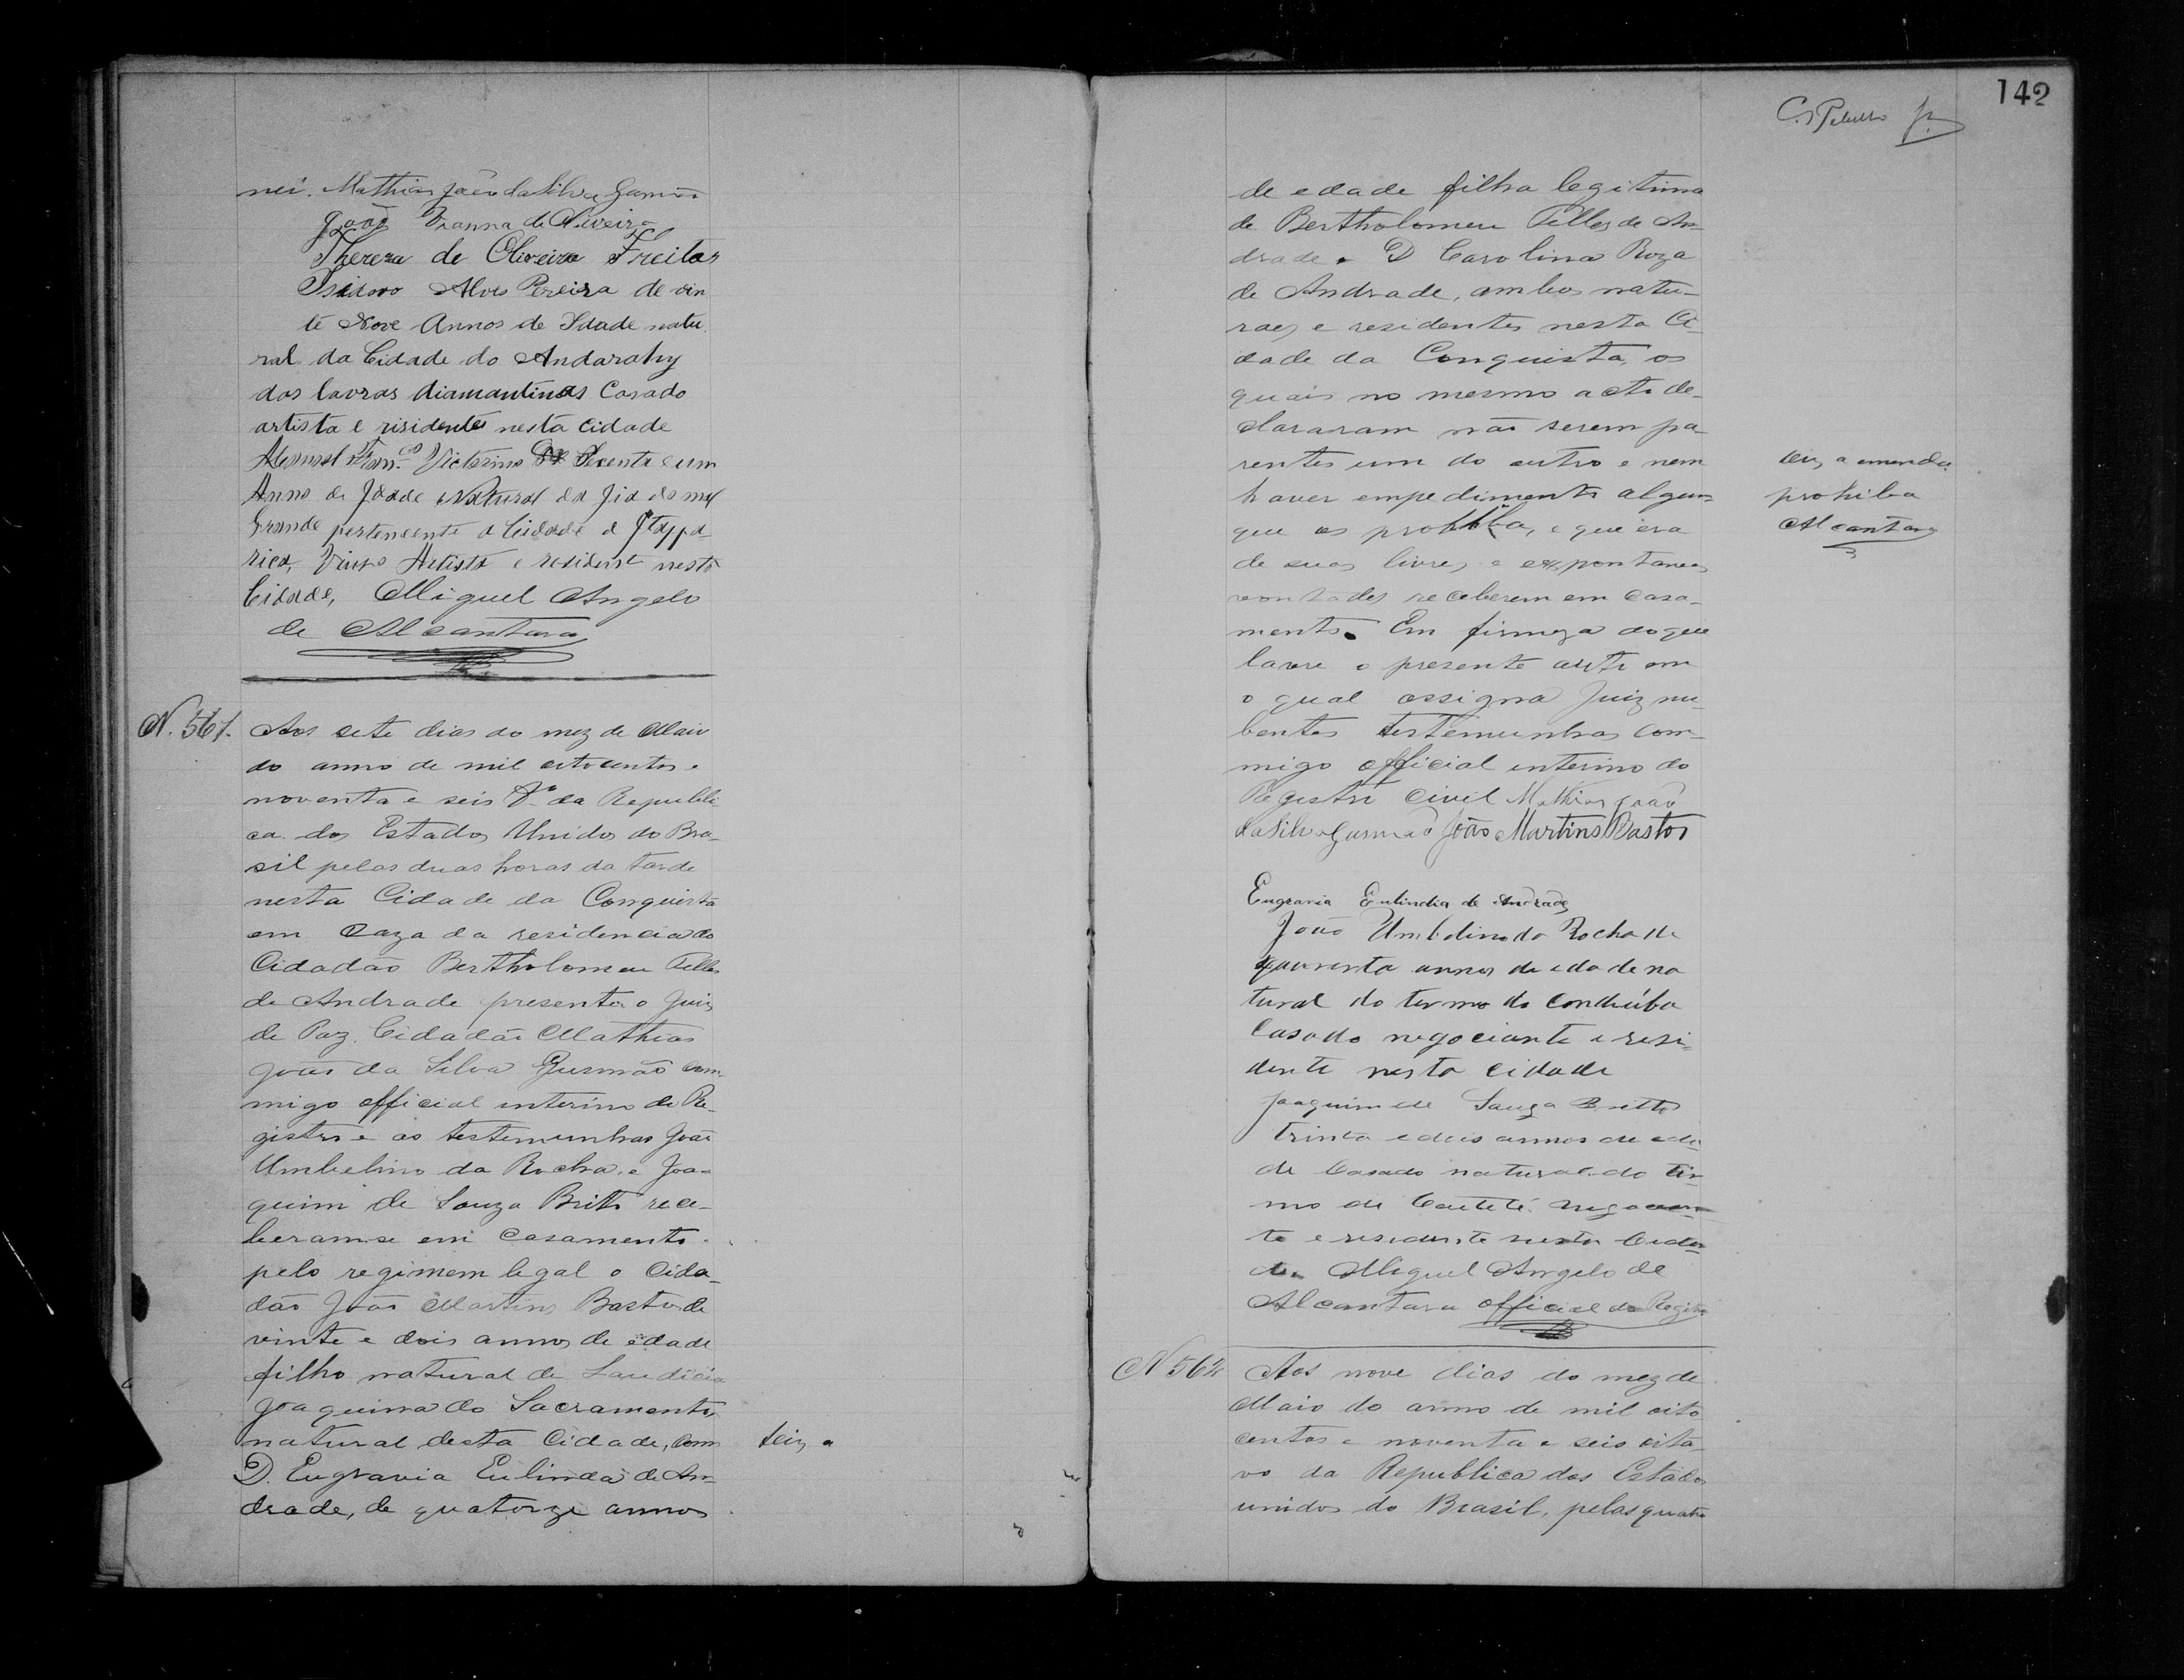 nei. Mathias João da Silva Gusmão
João Vianna de Oliveira
Thereza de Oliveira Freitas
Isidoro Alves Pereira de vin
te Nove Annos de Idade natu
ral da Cidade do Andarahy
das lavras diamantinas Casado
artista e risidente nesta cidade
Manuel Fran.co Victorino De Secenta e um
Anno de Idade Natural da
Grande pertencente a Cidade d Itapa-
rica, Viuvo Artista e residente nesta
Cidade, Miguel Angelo
de Alcantara
N. 561. Aos sete dias do mez de Maio
do anno de mil oitocentos e
noventa e seis 8º da Republi
ca dos Estados Unidos do Bra-
sil pelas duas horas da tarde
nesta Cidade da Conquista
em Caza da residencia do
Cidadão Bertholomeu Telles
de Andrade presente o Juiz
de Paz Cidadão Mathias
João da Silva Gusmão com
migo official interino de Re-
gistro e as testemunhas João
Umbelino da Rocha, e Joa-
quim de Souza Britto rece-
beram-se em Casamento
pelo regimem legal o Cida-
dão João Martins Bastos de
vinte e dois annos de edade
filho natural de Laudicia
Joaquina do Sacramento,
natural desta Cidade, com
D. Eugravia Eulinda de An-
drade, de quatorze annos
142
de edade filha legitima
de Bertholomeu Telles de An-
drade e D Carolina Roza
de Andrade, ambos natu-
raes e residentes nesta Ci-
dade da Conquista, os
quais no mesmo acto de-
clararam não serem pa-
rentes um do outro e nem
haver empedimento algum
que os prohiba, e que era
de suas livres e expontaneas
vontades receberem em casa-
mento. Em firmeza do que
lavrei o presente acto em
o qual assigna Juiz nu-
bentes testemunhas com-
migo official interino do
Registro Civil Mathias João
da Silva Gusmão João Martins Bastos
Eugravia Eulindia de Andrade
João Umbelino da Rocha de
quarenta annos de edade na
tural do termo do Condeúba
Casado negociante e resi-
dente nesta cidade
Joaquim de Souza Britto
trinta e dois annos de eda
de Casado natural do ter-
mo de Caeteté negocian-
te e residente nesta Cida-
de. Miguel Angelo de
Alcantara official do Registro
leia, a emenda
prohiba
Alcantara
N 562 Aos nove dias do mez de
Maio do anno de mil oito
centos e noventa e seis oita-
vo da Republica dos Estados
unidos do Brasil, pelas quatro